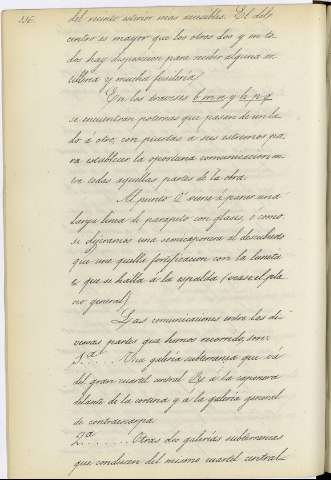 136.
del recinto esterior mas accesibles. El del
centro es mayor que los otros dos y en to-
dos hay disposicion para recibir alguna ar-
tilleria y mucha fusileria.
En los traveses b m n y l i p q
se encuentran poternas que pasan de un la-
do á otro, con puertas á sus estremos pa-
ra establecer la oportuna comunicacion en-
tre todas aquellas partes de la obra.
Al punto viene á parar una
larga linea de parapeto con glasis, ó como
si dijeramos una semicaponera al descubierto
que une aquella fortificacion con la luneta
que se halla á la espalda (vease el pla-
no general)
Las comunicaciones entre las di-
versas partes que hemos recorrido, son:
1.ª ..... Una galería subterranea que vá
del gran cuartel central á la caponera
delante de la cortina y á la galería general
de contraescarpa
2.ª ..... Otras dos galerías subterraneas
que conducen del mismo cuartel central